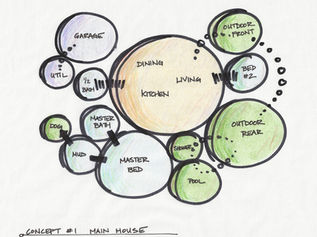 GARAGE
OUTDOOR
FRONT
UTIL
½
BATH
DINING
LIVING
KITCHEN
BED
#2
DOG
MASTER
BATH
MUD
MASTER
BED
OUTDOOR
REAR
SHOWER
POOL
CONCEPT #1 MAIN HOUSE